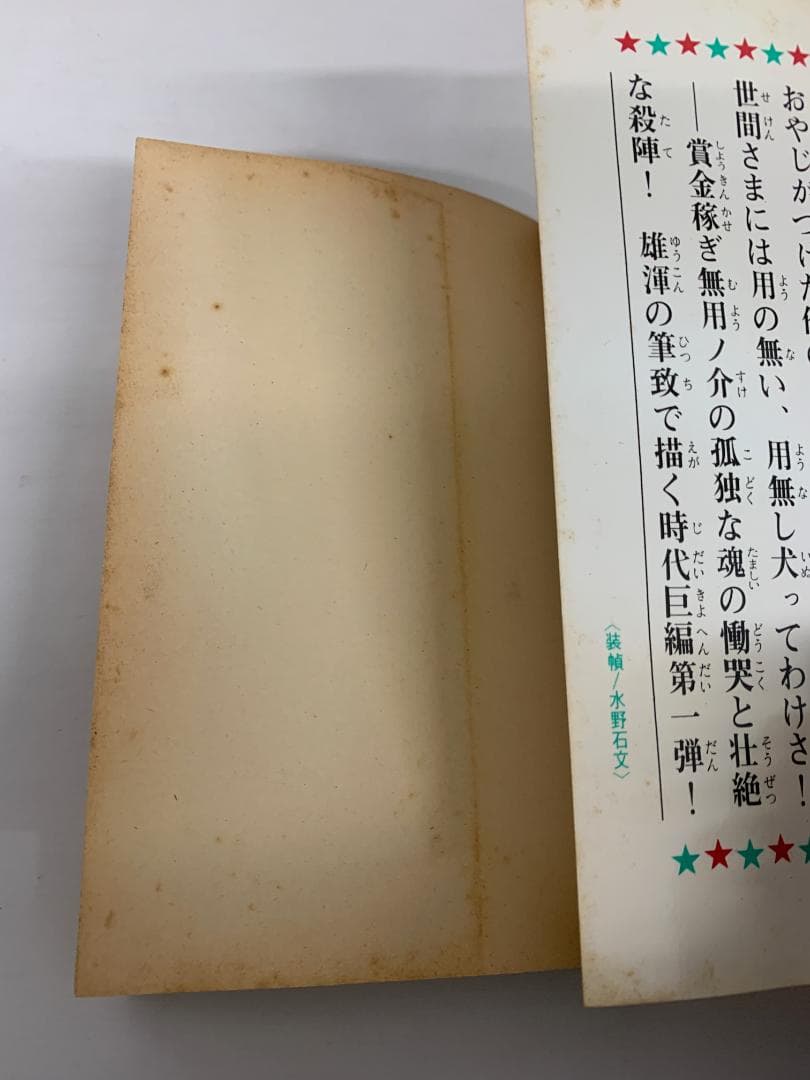 おやじがつけた
世間さまには用の無い、用無し犬ってわけさ！
―賞金稼ぎ無用ノ介の孤独な魂の慟哭と壮絶
な殺陣！　雄渾の筆致で描く時代巨編第一弾！
〈装幀/水野石文〉